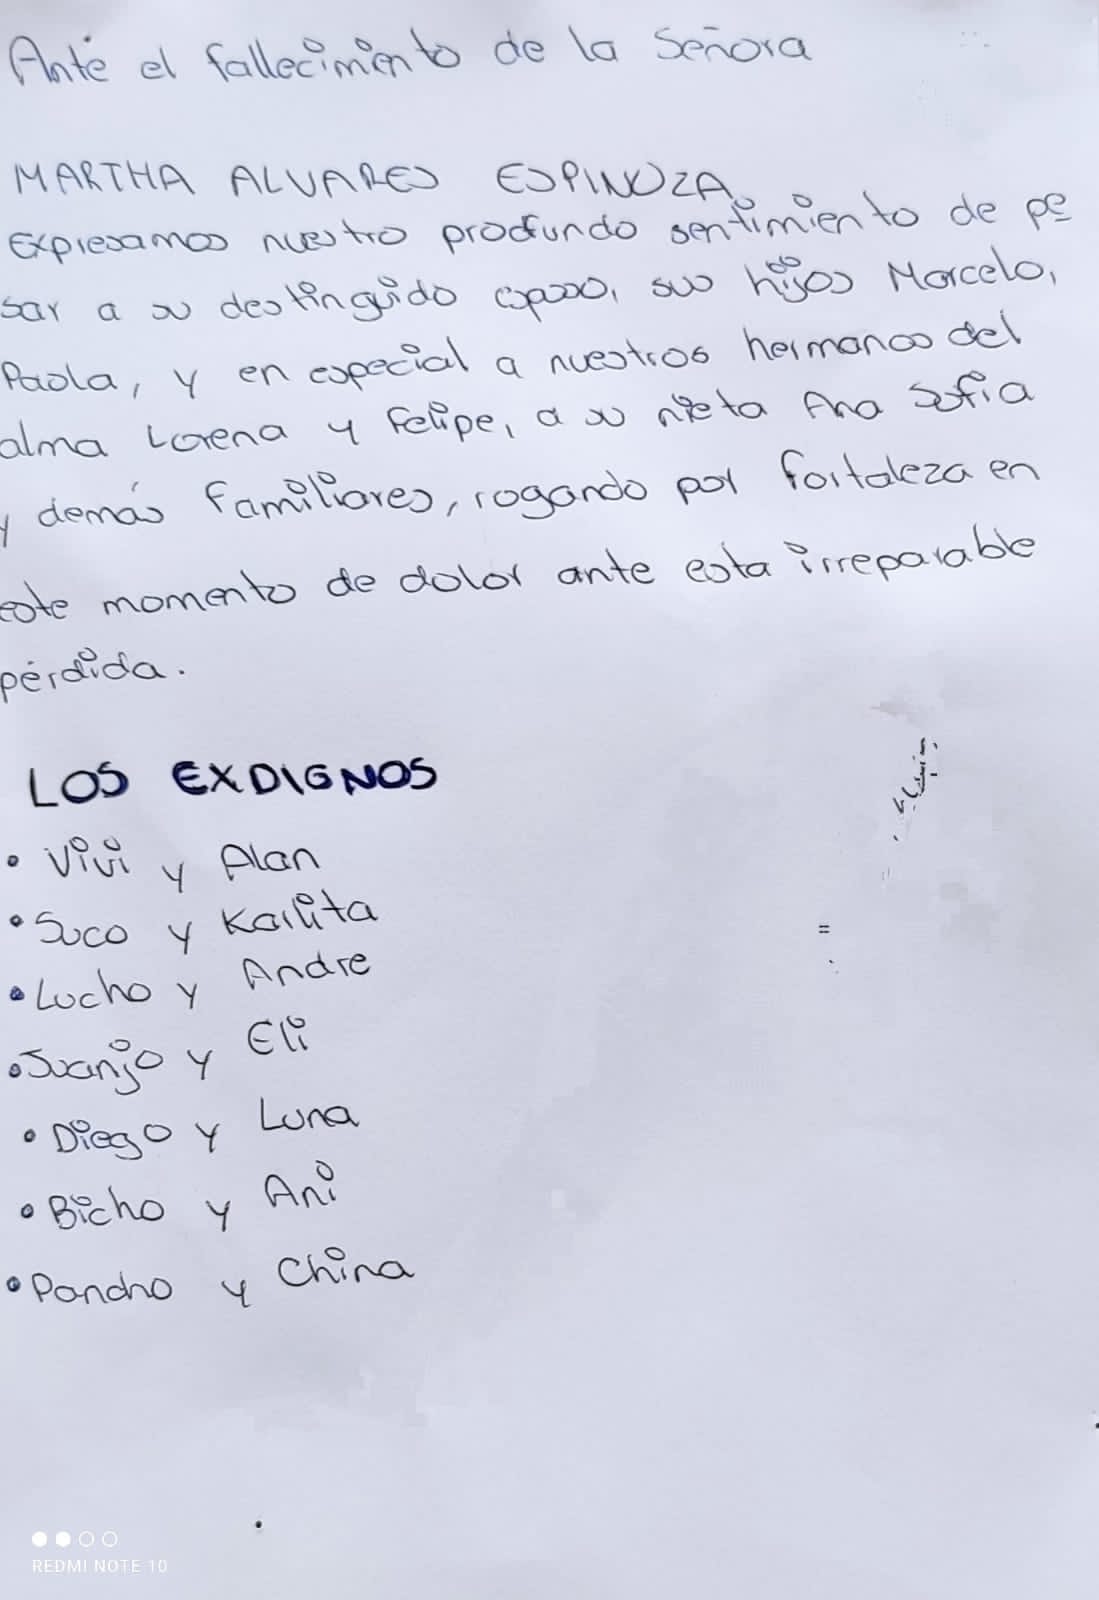 Ante el fallecimiento de la Señora
MARTHA ALVARES ESPINOZA
Expresamos nuestro profundo sentimiento de pe
sar a su destinguido esposo, sus hijos Marcelo,
Paola, y en especial a nuestros hermanos del
alma Lorena y Felipe, a su nieta Ana Sofia
y demás familiares, rogando por fortaleza en
este momento de dolor ante esta irreparable
pérdida.
LOS EXDIGNOS
• Vivi y Alan
• Suco y Karlita
• Lucho y Andre
• Juanjo y Eli
• Diego y Luna
• Bicho y Ani
• Pancho y China
REDMI NOTE 10